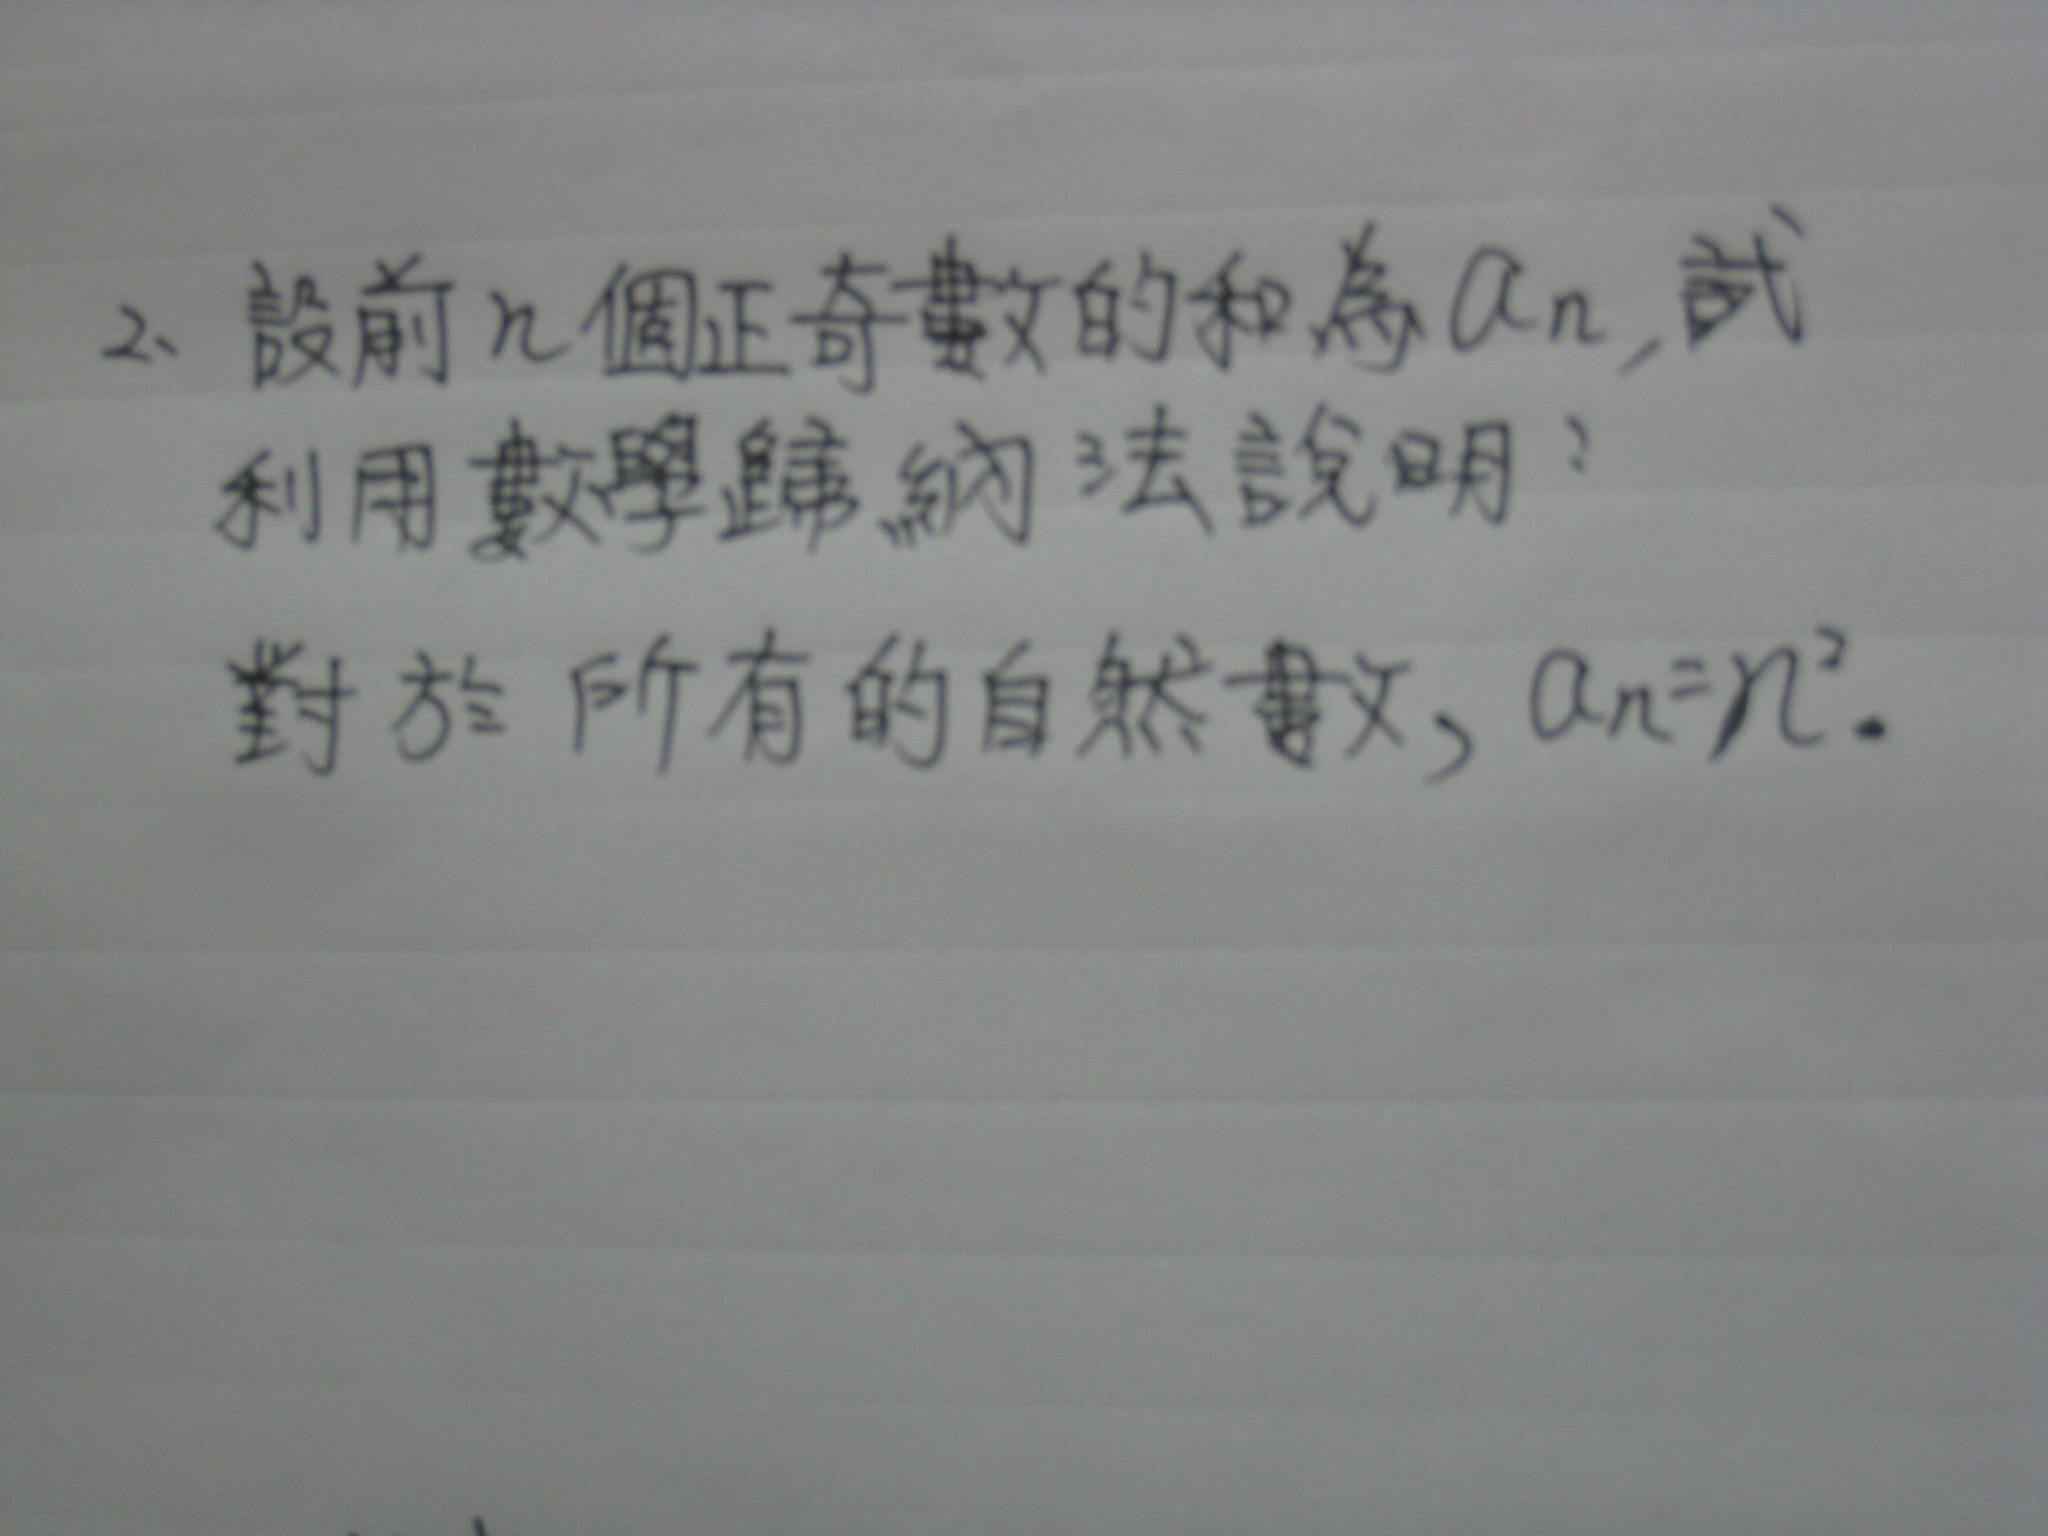 2、設前n個正奇數的和為an,試
利用數學歸納法說明:
對於所有的自然數,an=n².